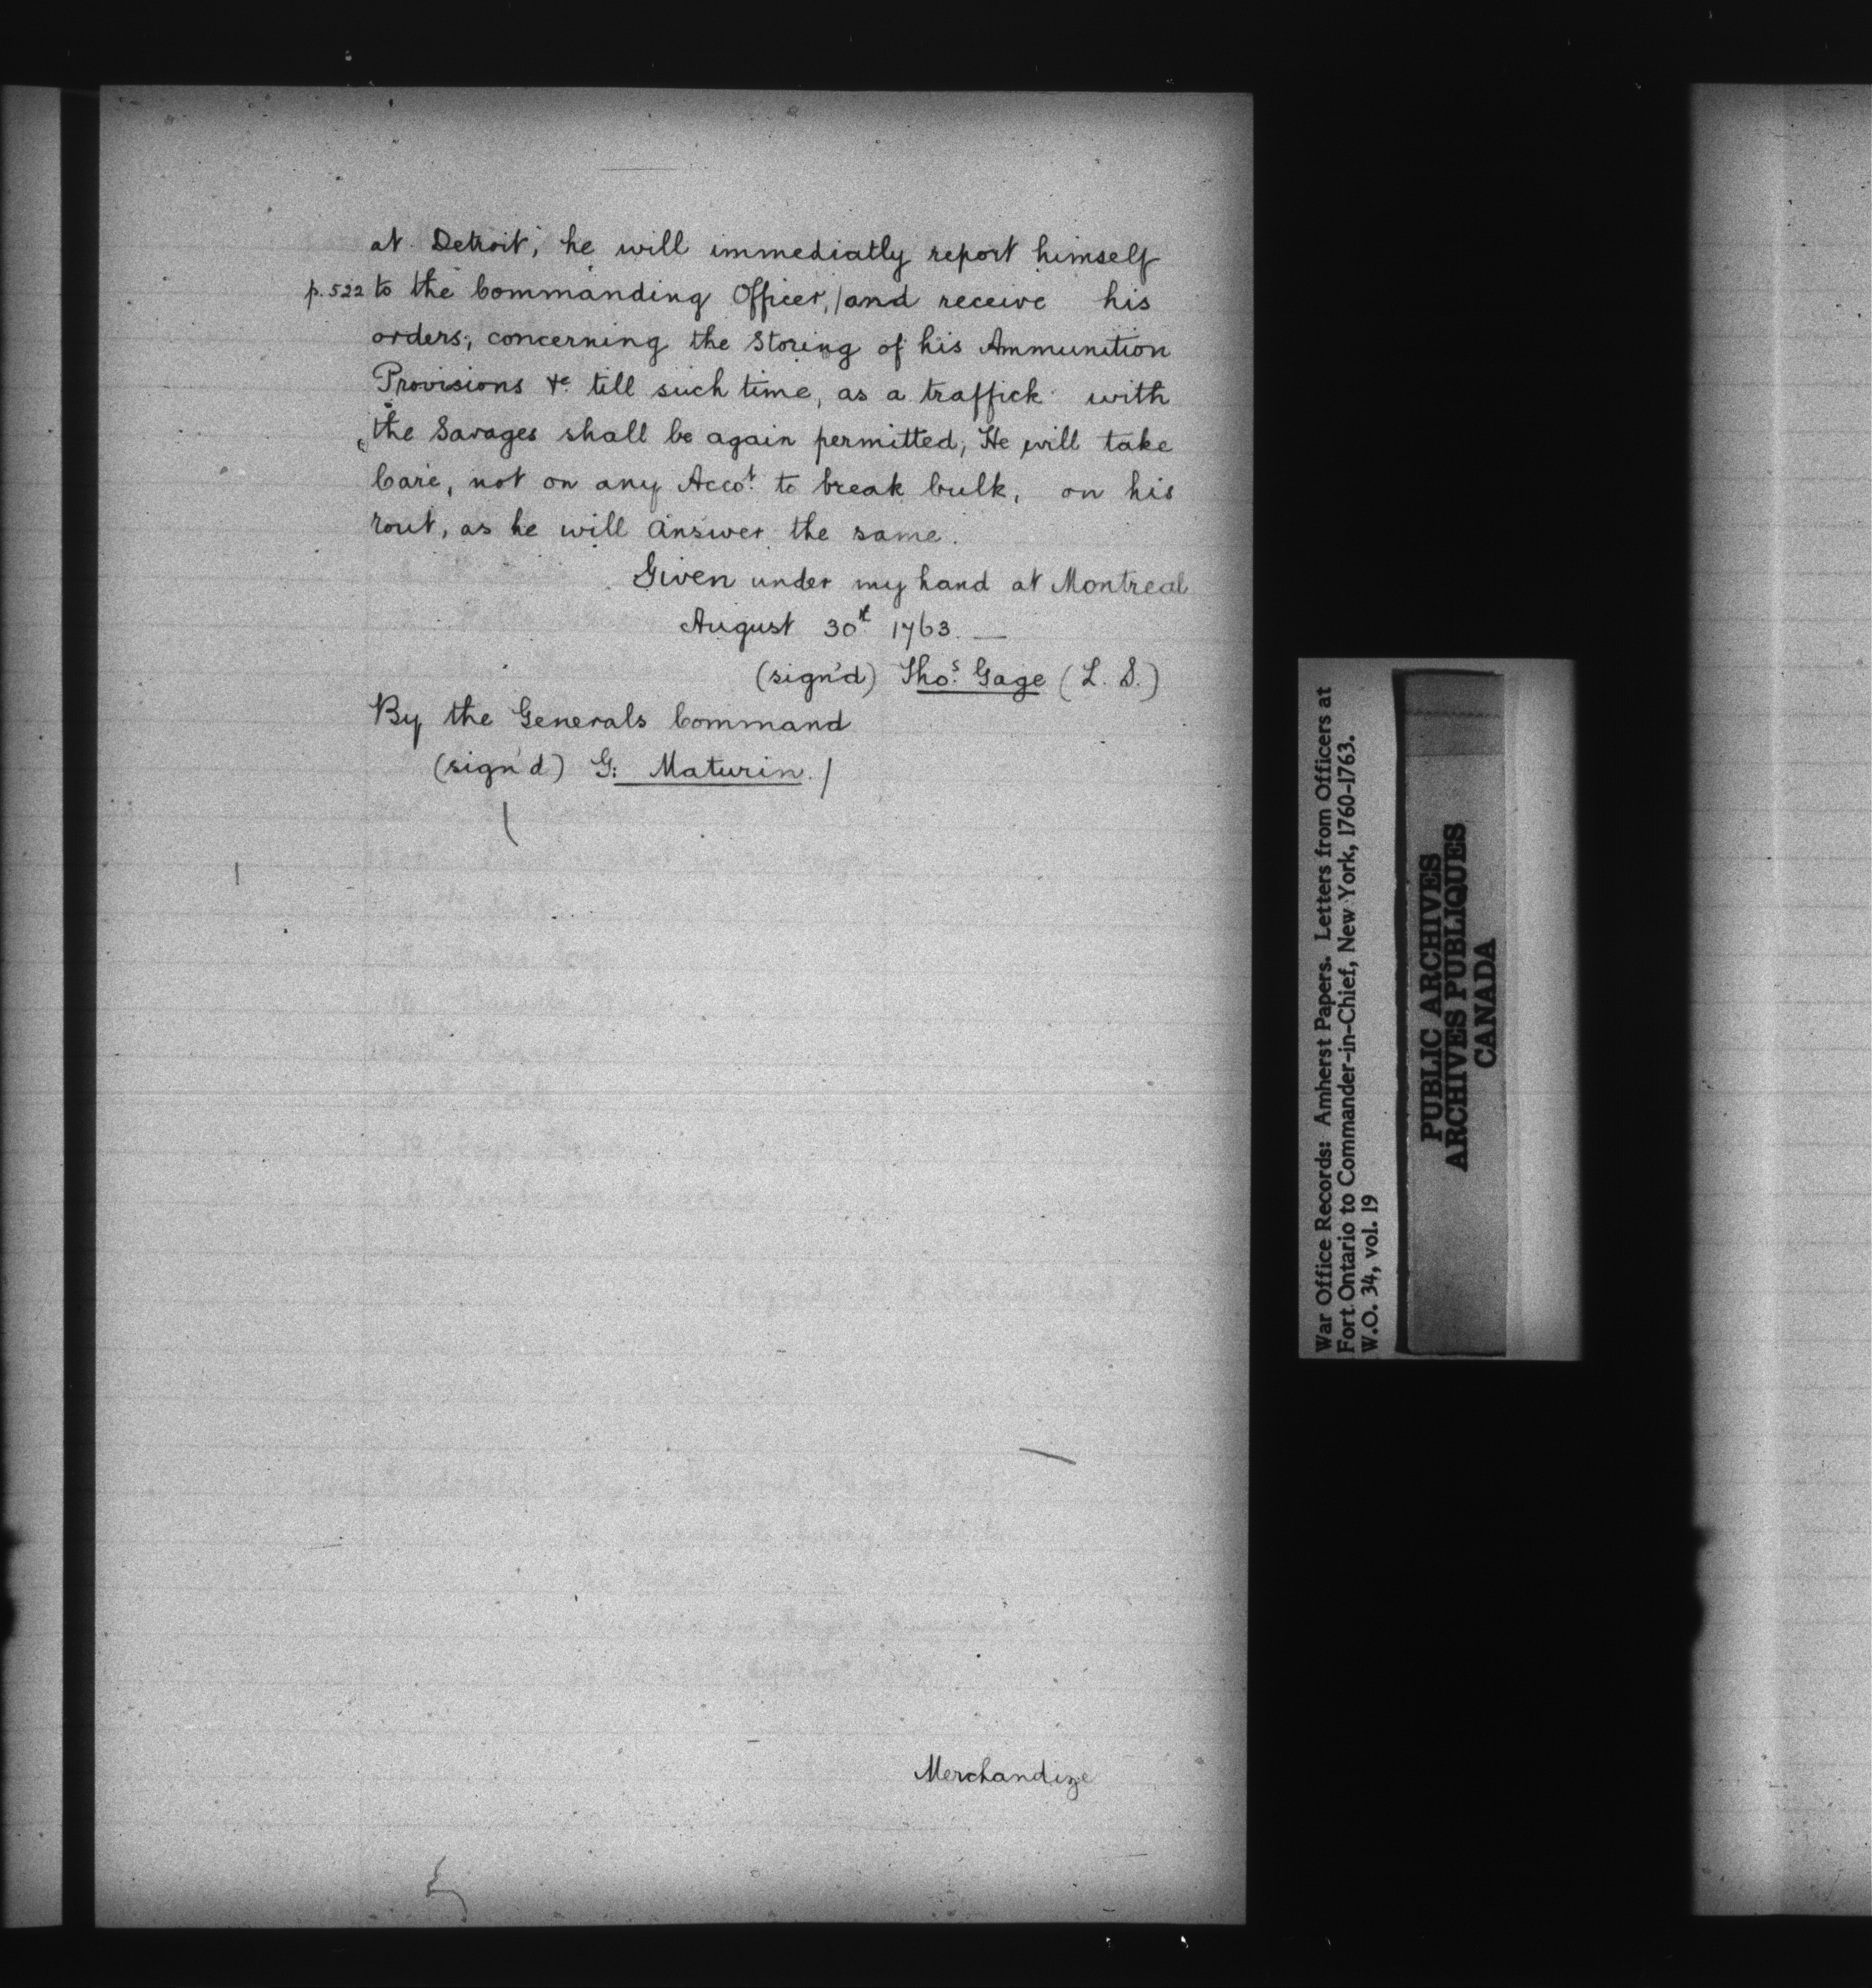 at Detroit, he will immediatly report himself
p.522 to the Commanding Officer,/and receive his
orders, concerning the Storing of his Ammunition
Provisions &c. till such time, as a traffick with
the Savages shall be again permitted, He will take
Care, not on any Accot. to break bulk, on his
rout, as he will answer the same.
Given under my hand at Montreal
August 30th 1763. —
(sign'd) Thos. Gage (L. S.)
By the Generals Command
(sign'd) G: Maturin./
Merchandize
War Office Records: Amherst Papers. Letters from Officers at
Fort Ontario to Commander-in-Chief, New York, 1760-1763.
W.O. 34, vol. 19
PUBLIC ARCHIVES
ARCHIVES PUBLIQUES
CANADA